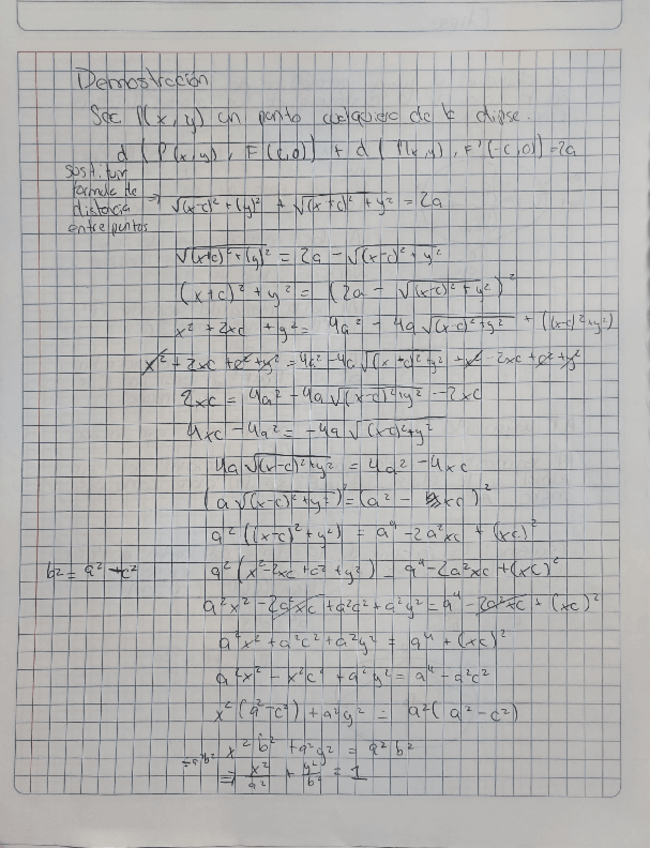 Demostración
Sea P(x,y) un punto cualquiera de la elipse.
d(P(x,y), F(c,0)) + d(P(x,y), F'(-c,0)) = 2a
sustituir
formula de
distacia
entre puntos
⇒ √(x-c)² + (y)² + √(x+c)² + y² = 2a
√(x+c)² + (y)² = 2a - √(x-c)² + y²
(x+c)² + y² = (2a - √(x-c)² + y²)²
x² + 2xc + y² = 4a² - 4a√(x-c)² + y² + ((x-c)² + y²)
x² + 2xc + c² + y² = 4a² - 4a√(x+c)² + y² + x² - 2xc + c² + y²
2xc = 4a² - 4a√(x-c)² + y² - 2xc
4xc - 4a² = -4a√(x-c)² + y²
4a√(x-c)² + y² = 4a² - 4xc
(a√(x-c)² + y²)² = (a² - xc)²
a²((x-c)² + y²) = a⁴ - 2a²xc + (xc)²
b² = a² - c²
a²(x² - 2xc + c² + y²) = a⁴ - 2a²xc + (xc)²
a²x² - 2a²xc + a²c² + a²y² = a⁴ - 2a²xc + (xc)²
a²x² + a²c² + a²y² = a⁴ + (xc)²
a²x² - x²c² + a²y² = a⁴ - a²c²
x²(a² - c²) + a²y² = a²(a² - c²)
x²b² + a²y² = a²b²
÷a²b²
⇒ x²/a² + y²/b² = 1